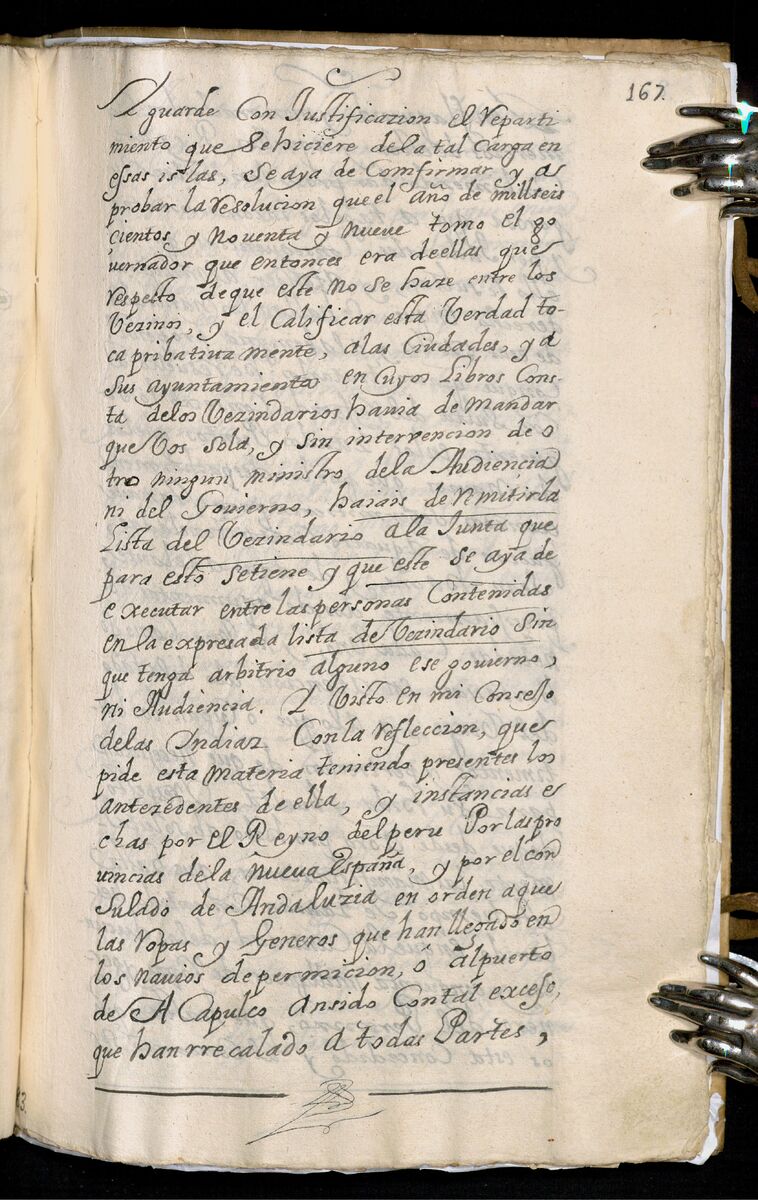 167.
Aguarde Con Justificazion el reparti
miento que Sehiciere dela tal Carga en
essas islas, seaya de Comfirmar y a
probar la resolucion que el año de millseis
cientos y noventa y nueve tomo el go
vernador que entonces era deellas que
respecto deque este no se haze entre los
Vezinos, y el Calificar esta Verdad to-
ca pribatiuamente, alas Ciudades, y a
sus ayuntamientos en Cuyos Libros Cons-
ta delos Vezindarios hauia de mandar
que Vos sola, y sin intervencion de o
tro ningun ministro dela Audiencia
ni del Gouierno, haiais de remitir la
Lista del Vezindario ala Junta que
para esto setiene y que este se aya de
executar entre las personas Contenidas
en la expresada lista de Vezindario Sin
que tenga arbitrio alguno ese gouierno,
ni Audiencia. Y Visto en mi Consejo
delas Indias Con la refleccion, que
pide esta materia teniendo presentes los
antezedentes de ella, y instancias e
chas por el Reyno del peru Por las pro
uincias dela NuevaEspaña, y por el con
sulado de Andaluzia en orden a que
las ropas y Generos que han llegado en
los navios de permicion, ó al puerto
de ACapulco ansido Con tal exceso,
que han rrecalado a todas Partes,